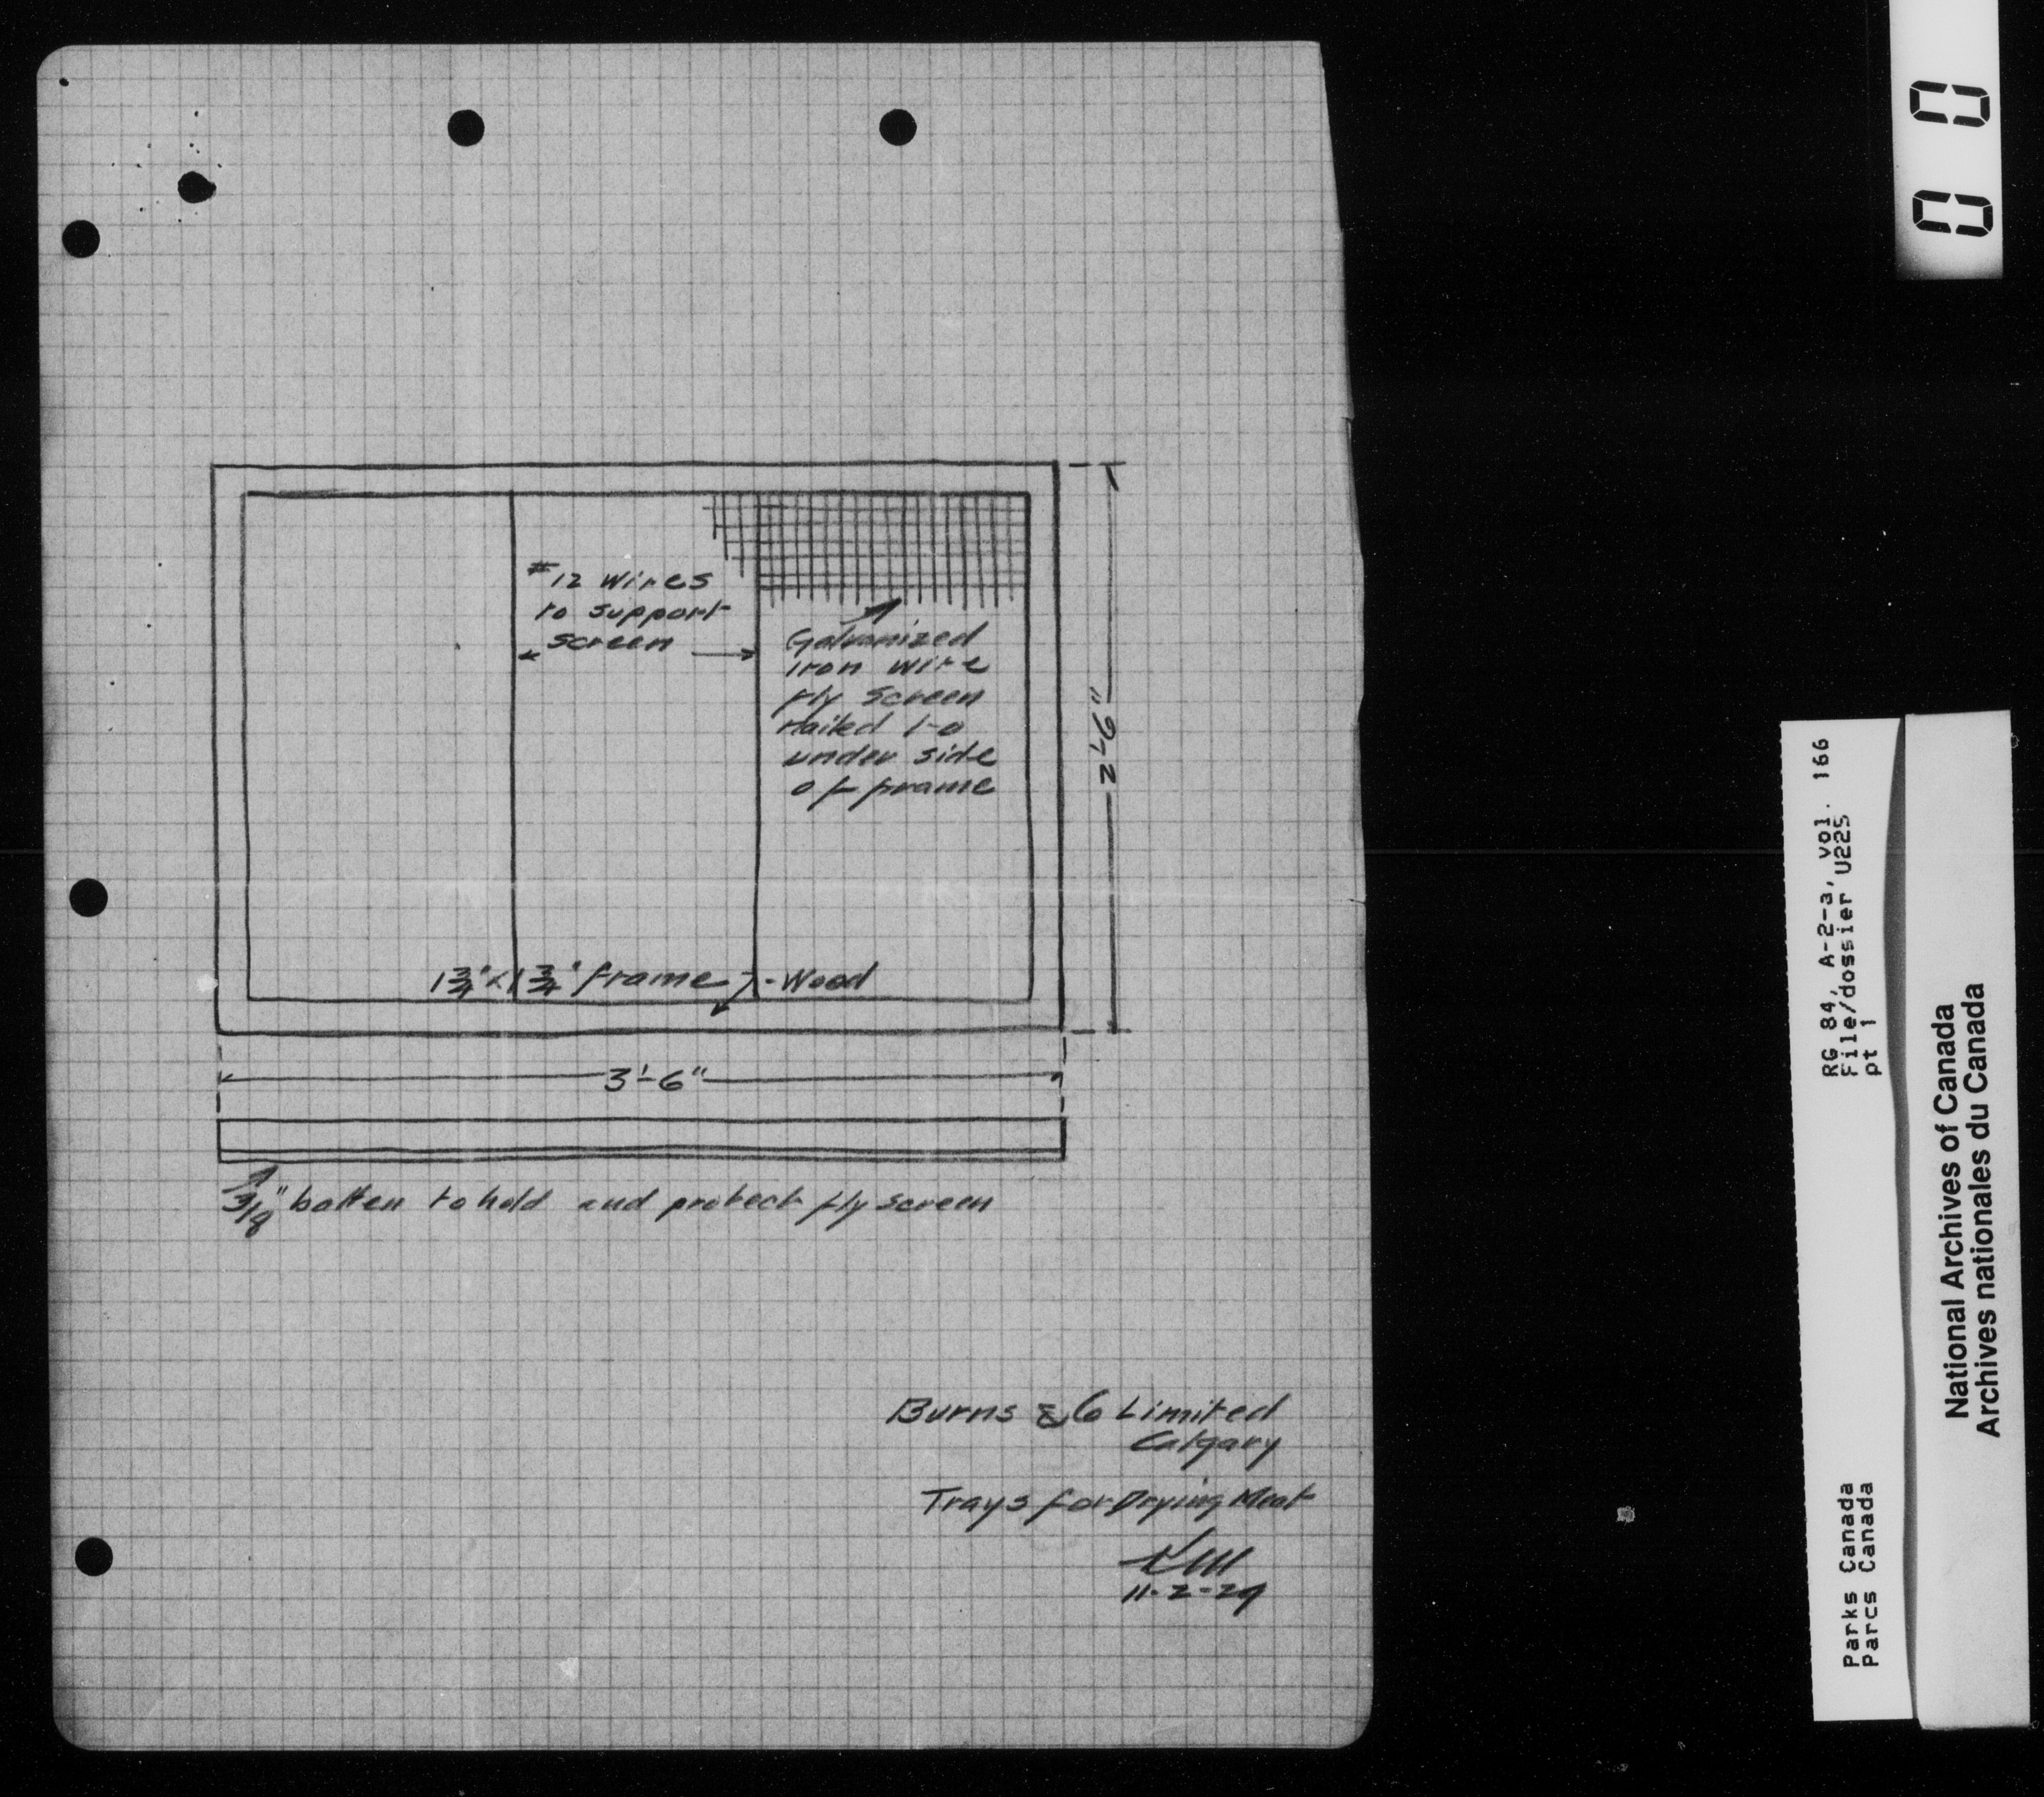 #12 wires
to support
screen
Galvanized
iron wire
fly screen
nailed to
under side
of frame
2'-6"
1 3/4" x 1 3/4" frame - Wood
3'-6"
3/8" batten to hold and protect fly screen
Burns & Co Limited
Calgary
Trays for Drying Meat
11-2-29
00
RG 84, A-2-3, vol. 166
File/dossier U225
pt 1
Parks Canada
Parcs Canada
National Archives of Canada
Archives nationales du Canada